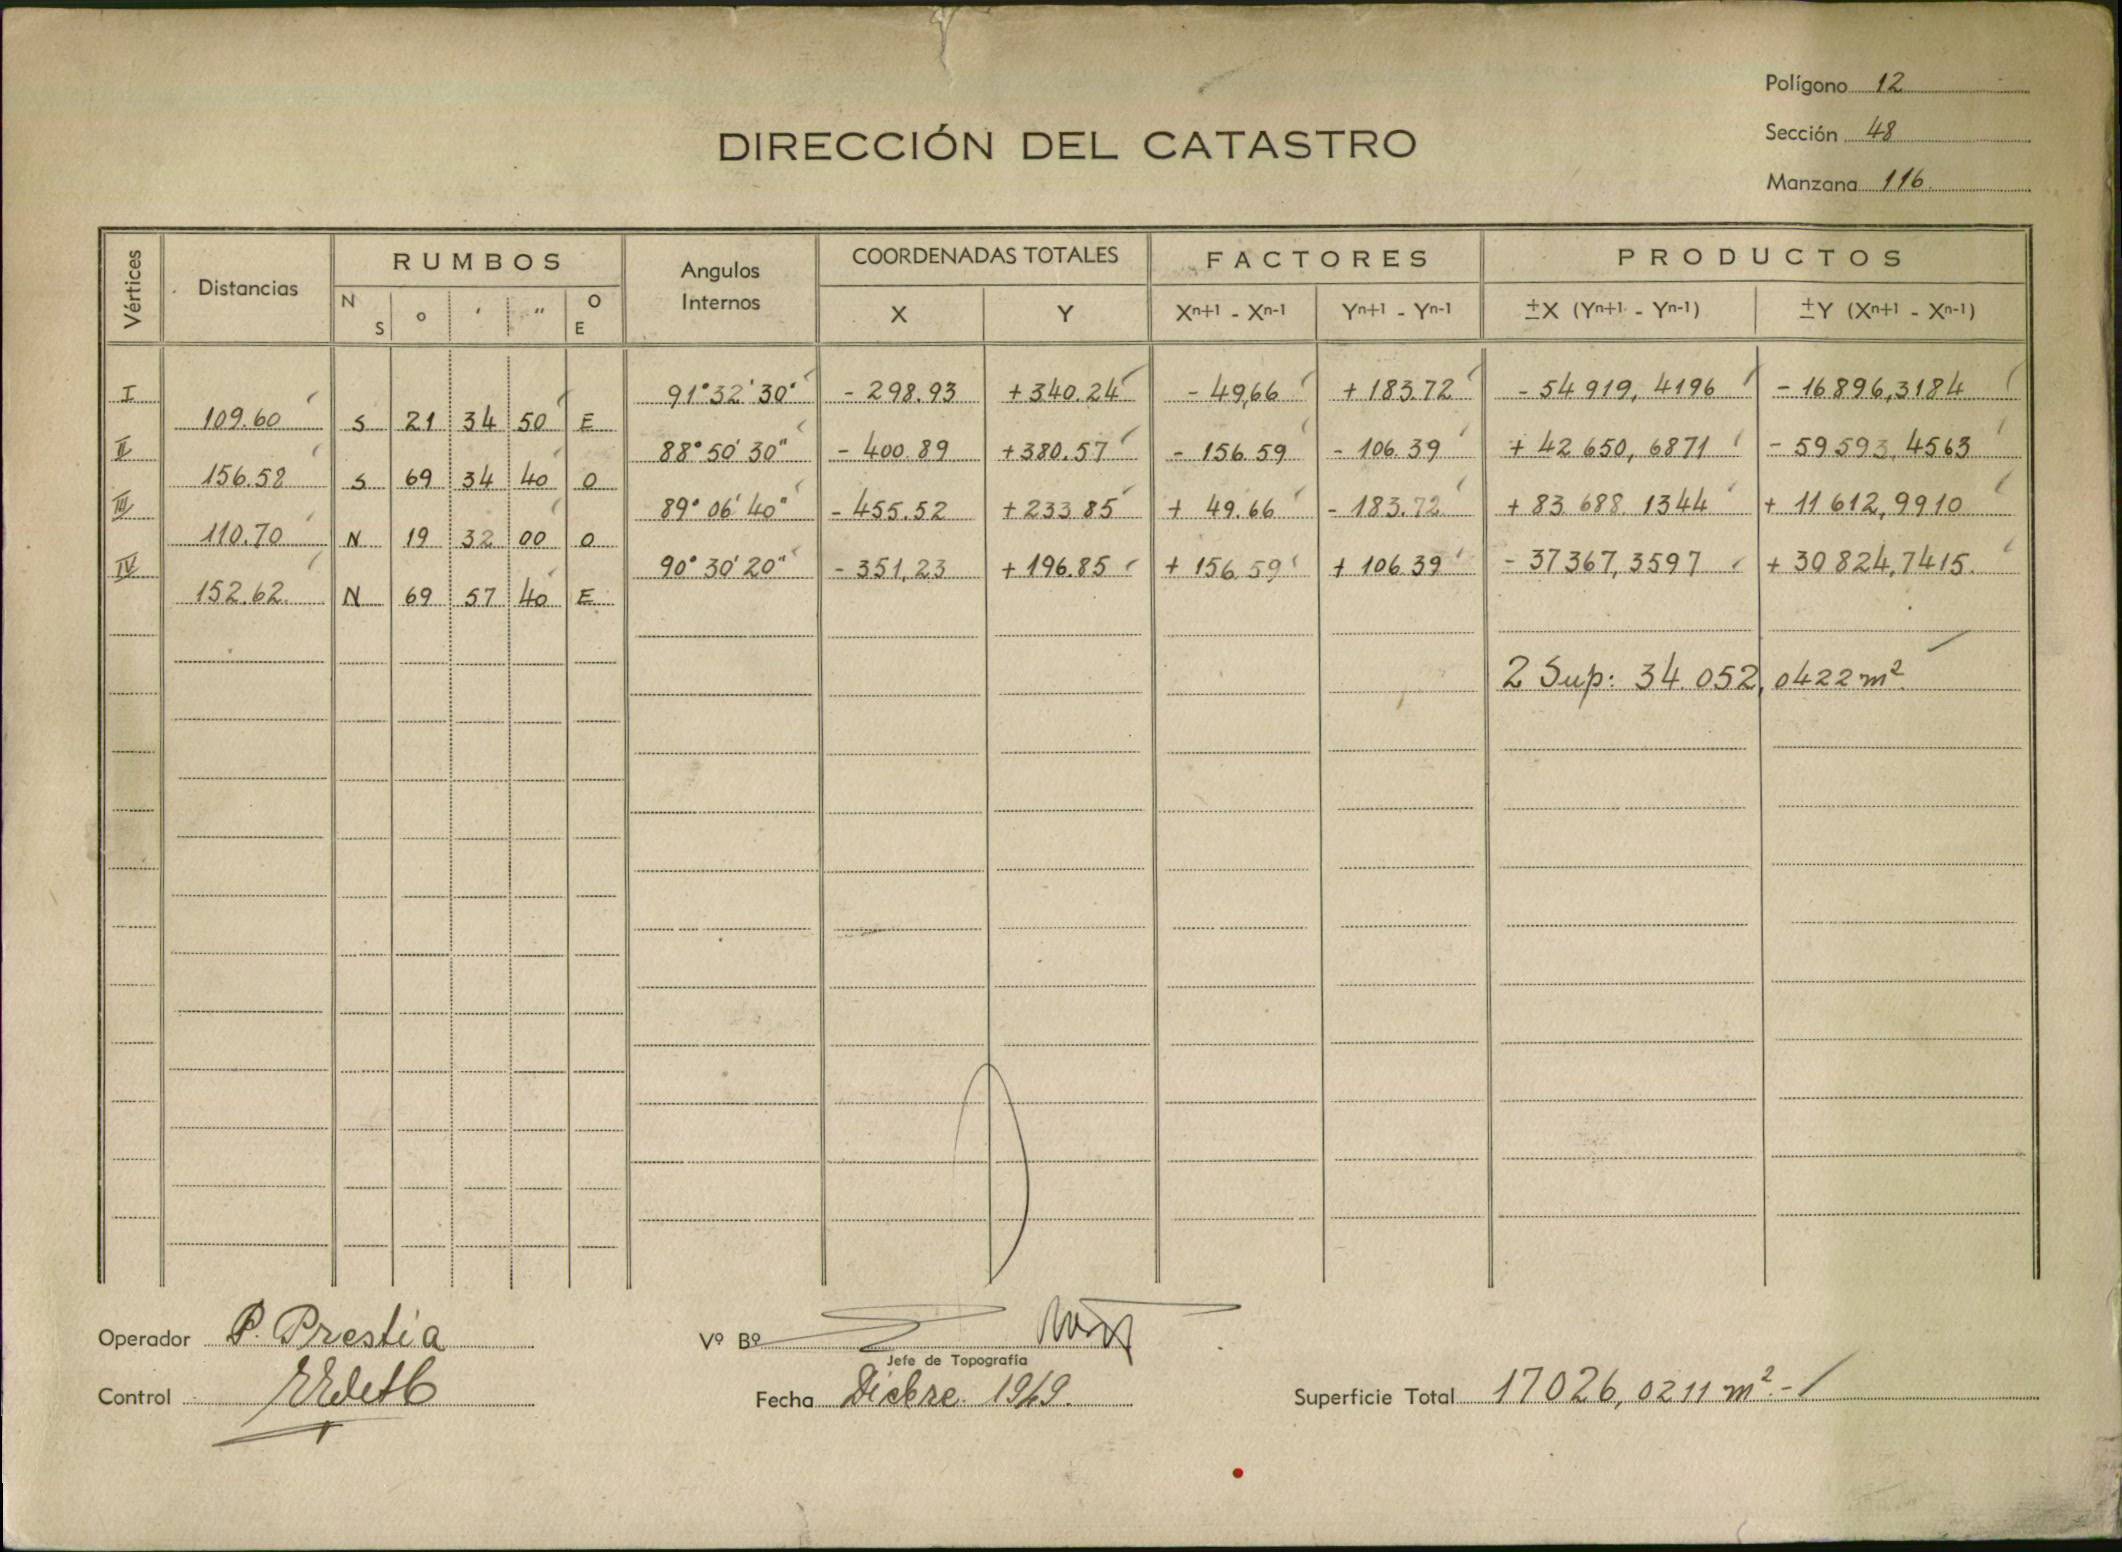 Polígono 12
DIRECCIÓN DEL CATASTRO
Sección 48
Manzana 116
Vértices Distancias RUMBOS Angulos Internos COORDENADAS TOTALES FACTORES PRODUCTOS
N S o ' " O E X Y Xn+1 - Xn-1 Yn+1 - Yn-1 ±X (Yn+1 - Yn-1) ±Y (Xn+1 - Xn-1)
I 91°32'30" - 298.93 + 340.24 - 49,66 + 183.72 - 54 919, 4196 - 16 896,3184
109.60 S 21 34 50 E
II 88°50'30" - 400.89 + 380.57 - 156.59 - 106.39 + 42 650, 6871 - 59 593, 4563
156.58 S 69 34 40 O
III 89°06'40" - 455.52 + 233.85 + 49.66 - 183.72 + 83 688. 1344 + 11 612,9910
110.70 N 19 32 00 O
IV 90°30'20" - 351,23 + 196.85 + 156.59 + 106.39 - 37 367, 3597 + 30 824,7415.
152.62 N 69 57 40 E
2 Sup: 34.052,0422 m²
Operador P. Prestia
Vº Bº
Jefe de Topografía
Control
Fecha Dicbre. 1949.
Superficie Total 17026, 0211 m².-